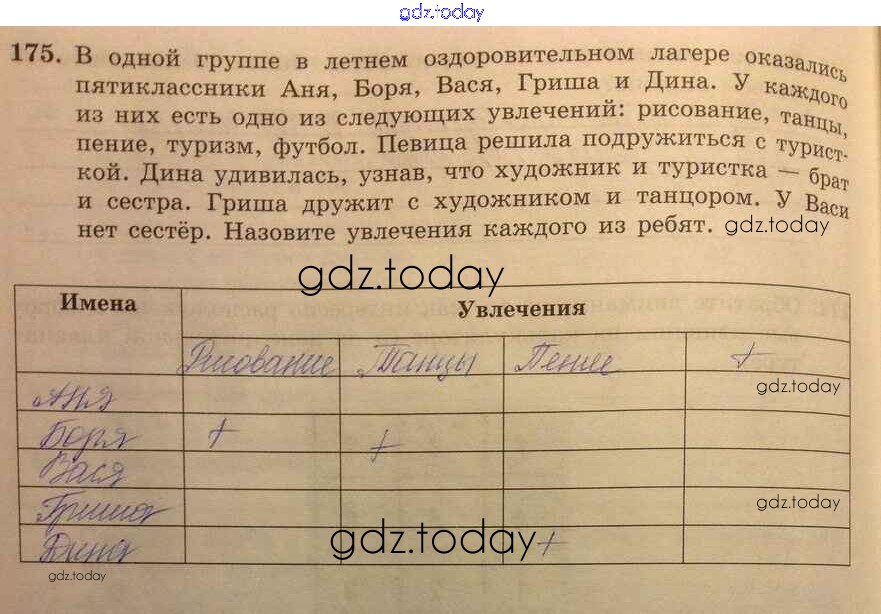 gdz.today
175. В одной группе в летнем оздоровительном лагере оказались
пятиклассники Аня, Боря, Вася, Гриша и Дина. У каждого
из них есть одно из следующих увлечений: рисование, танцы,
пение, туризм, футбол. Певица решила подружиться с турист-
кой. Дина удивилась, узнав, что художник и туристка — брат
и сестра. Гриша дружит с художником и танцором. У Васи
нет сестёр. Назовите увлечения каждого из ребят. gdz.today
gdz.today
Имена Увлечения
Рисование Танцы Пение +
Аня gdz.today
Боря +
Вася +
Гриша gdz.today
Дина gdz.today +
gdz.today